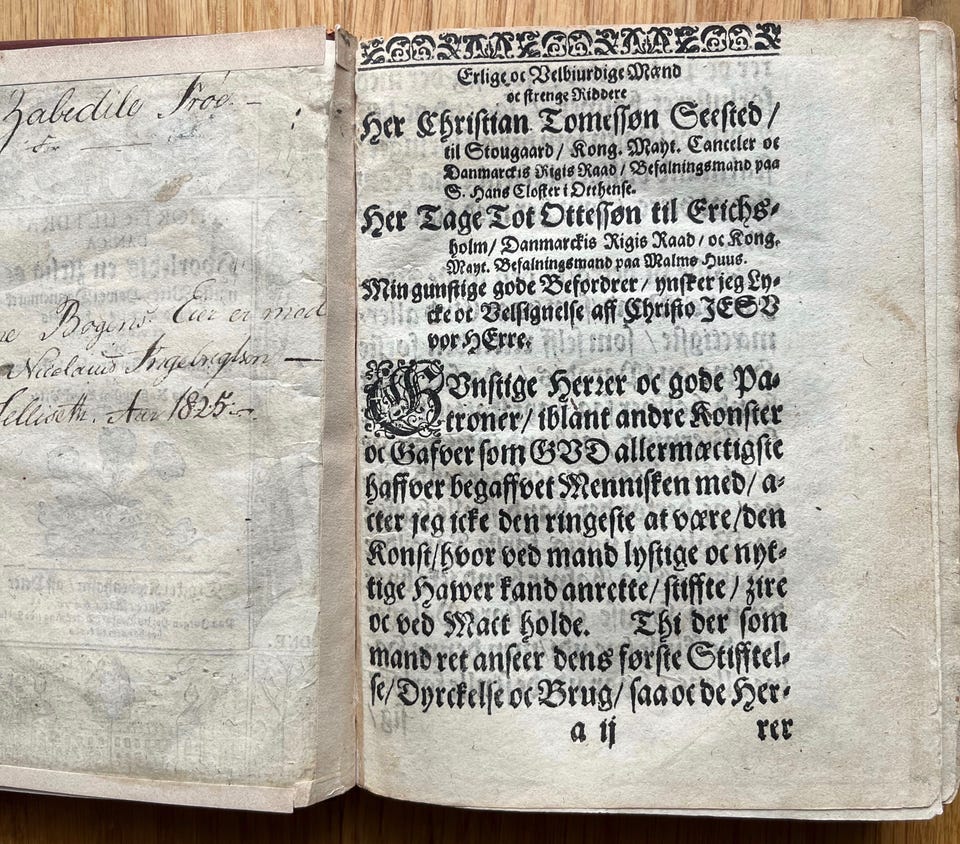 Zabedile Froe.
Bogens Eier er mad
Nicolaus Ingebregtson
Aar 1825
Erlige oc Velbiurdige Mænd
oc strenge Riddere
Her Christian Tomessøn Seested /
til Stougaard / Kong. Mayt. Canceler oc
Danmarckis Rigis Raad / Befalningsmand paa
S. Hans Closter i Otthense.
Her Tage Tot Ottessøn til Erichs-
holm / Danmarckis Rigis Raad / oc Kong.
Mayt. Befalningsmand paa Malmø Huus.
Min gunstige gode Befordrer / ynsker jeg Ly-
cke oc Velsignelse aff Christo JESV
vor HErre.
GVnstige Herrer oc gode Pa-
troner / iblant andre Konster
oc Gafver som GVD allermæctigste
haffver begaffvet Mennisken med / a-
cter jeg icke den ringeste at være / den
Konst / hvor ved mand lystige oc nyt-
tige Hawer kand anrette / stiffte / zire
oc ved Mact holde. Thi der som
mand ret anseer dens første Stifftel-
se / Dyrckelse oc Brug / saa oc de Her-
a ij rer